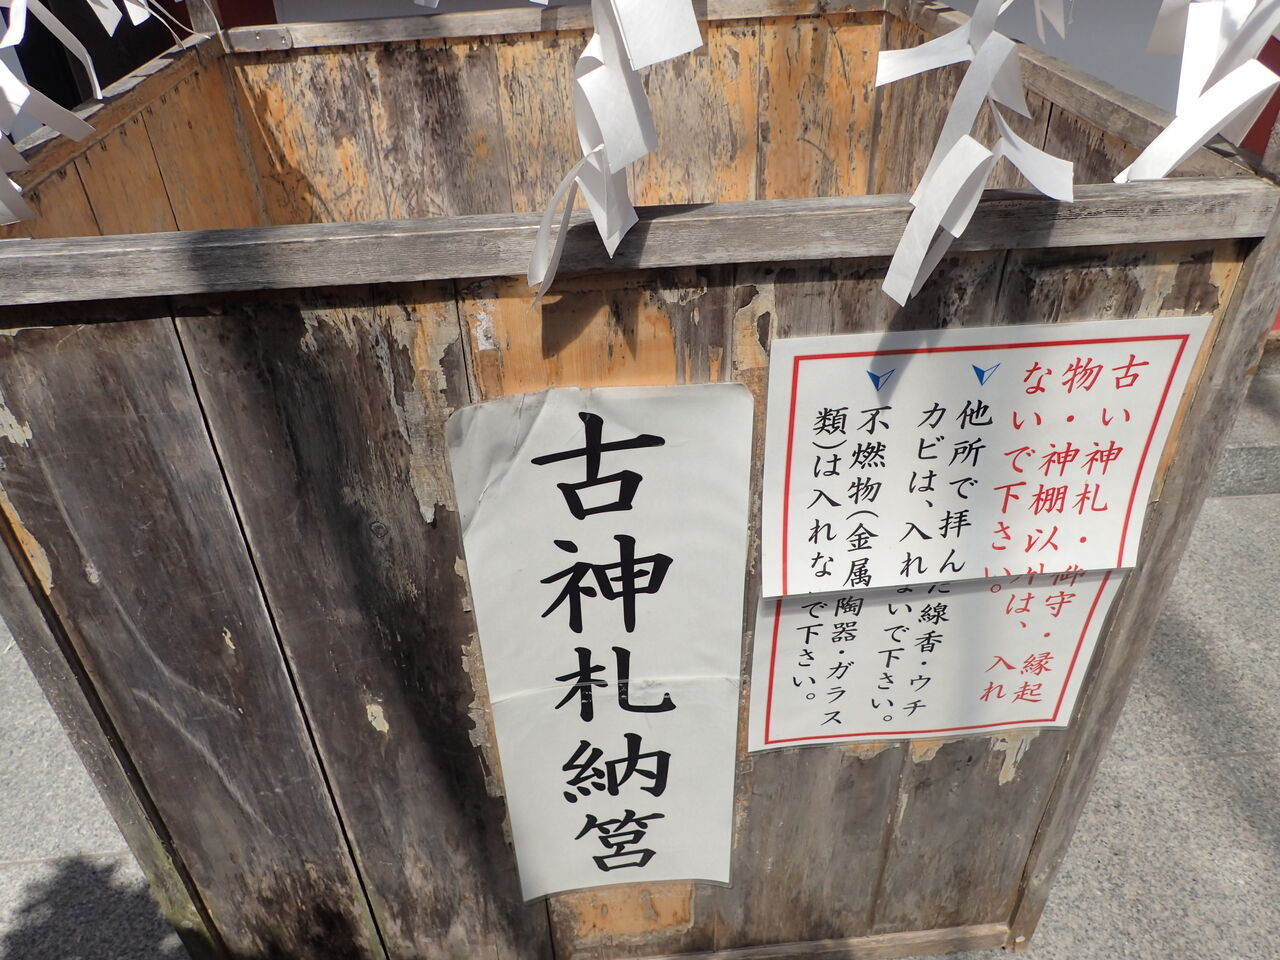 古神札納筥
古い神札・御守・縁起
物・神棚以外は、入れ
ないで下さい。
他所で拝んだ線香・ウチ
カビは、入れないで下さい。
不燃物(金属陶器・ガラス
類)は入れないで下さい。